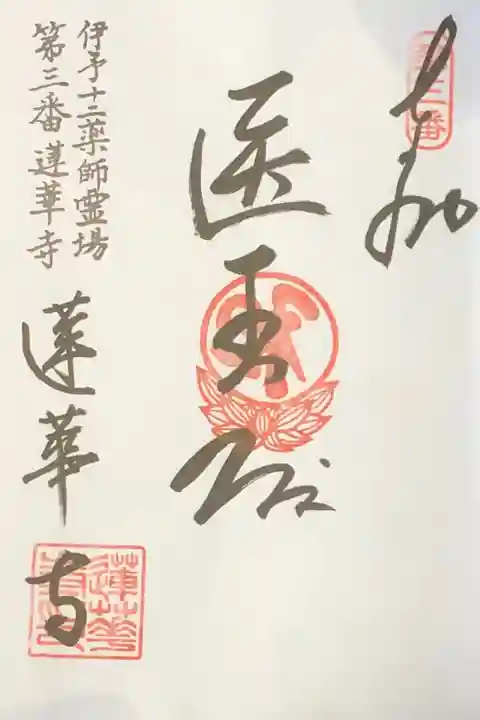 奉拝
第三番
医王殿
伊予十二薬師霊場
第三番蓮華寺
蓮華寺